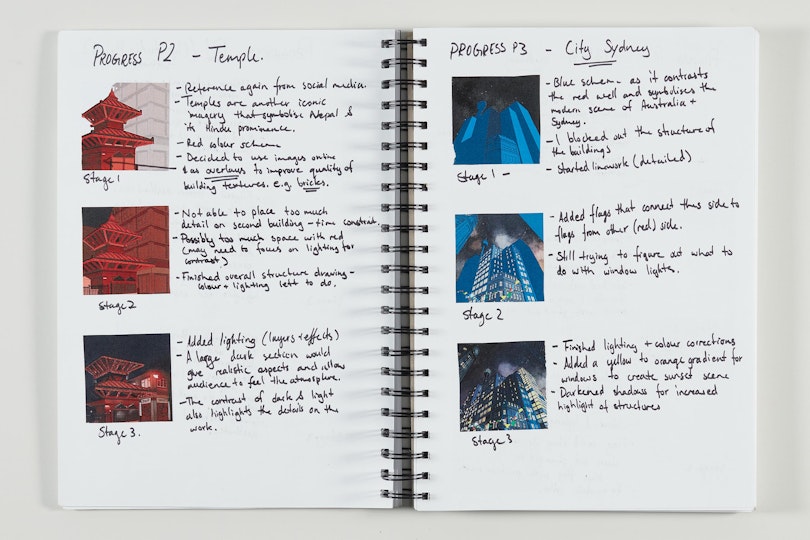 PROGRESS P2 - Temple.
- Reference again from social media.
- Temples are another iconic
imagery that symbolise Nepal &
its Hindu prominence.
- Red colour scheme
- Decided to use images online
& as overlays to improve quality of
building textures. e.g. bricks.
Stage 1
- Not able to place too much
detail on second building - time constraint.
- Possibly too much space with red
(may need to focus on lighting for
contrast)
- Finished overall structure drawing -
colour + lighting left to do.
Stage 2
- Added lighting (layers + effects)
- A large dark section would
give realistic aspects and allow
audience to feel the atmosphere.
- The contrast of dark & light
also highlights the details on the
work.
Stage 3.
PROGRESS P3 - City Sydney
- Blue scheme as it contrasts
the red well and symbolises the
modern scene of Australia +
Sydney.
- I blocked out the structure of
the buildings
- Started linework (detailed)
Stage 1 -
- Added flags that connect this side to
flags from other (red) side.
- Still trying to figure out what to
do with window lights.
Stage 2
- Finished lighting + colour corrections
- Added a yellow to orange gradient for
windows to create sunset scene
- Darkened shadows for increased
highlight of structures
Stage 3